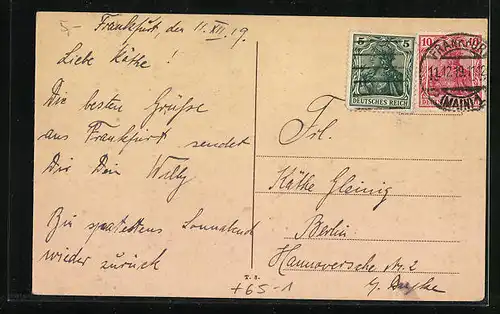 5,-
Frankfurt, den 11. XII. 19.
Liebe Käthe!
Die besten Grüsse
aus Frankfurt sendet
Dir Dein Willy
Bin spätestens Sonnabend
wieder zurück
5 5
DEUTSCHES REICH
10
FRANKFURT
11.12.19
(MAIN)
Frl.
Käthe Gleinig
Berlin
Hannoversche Str. 2
+65-1